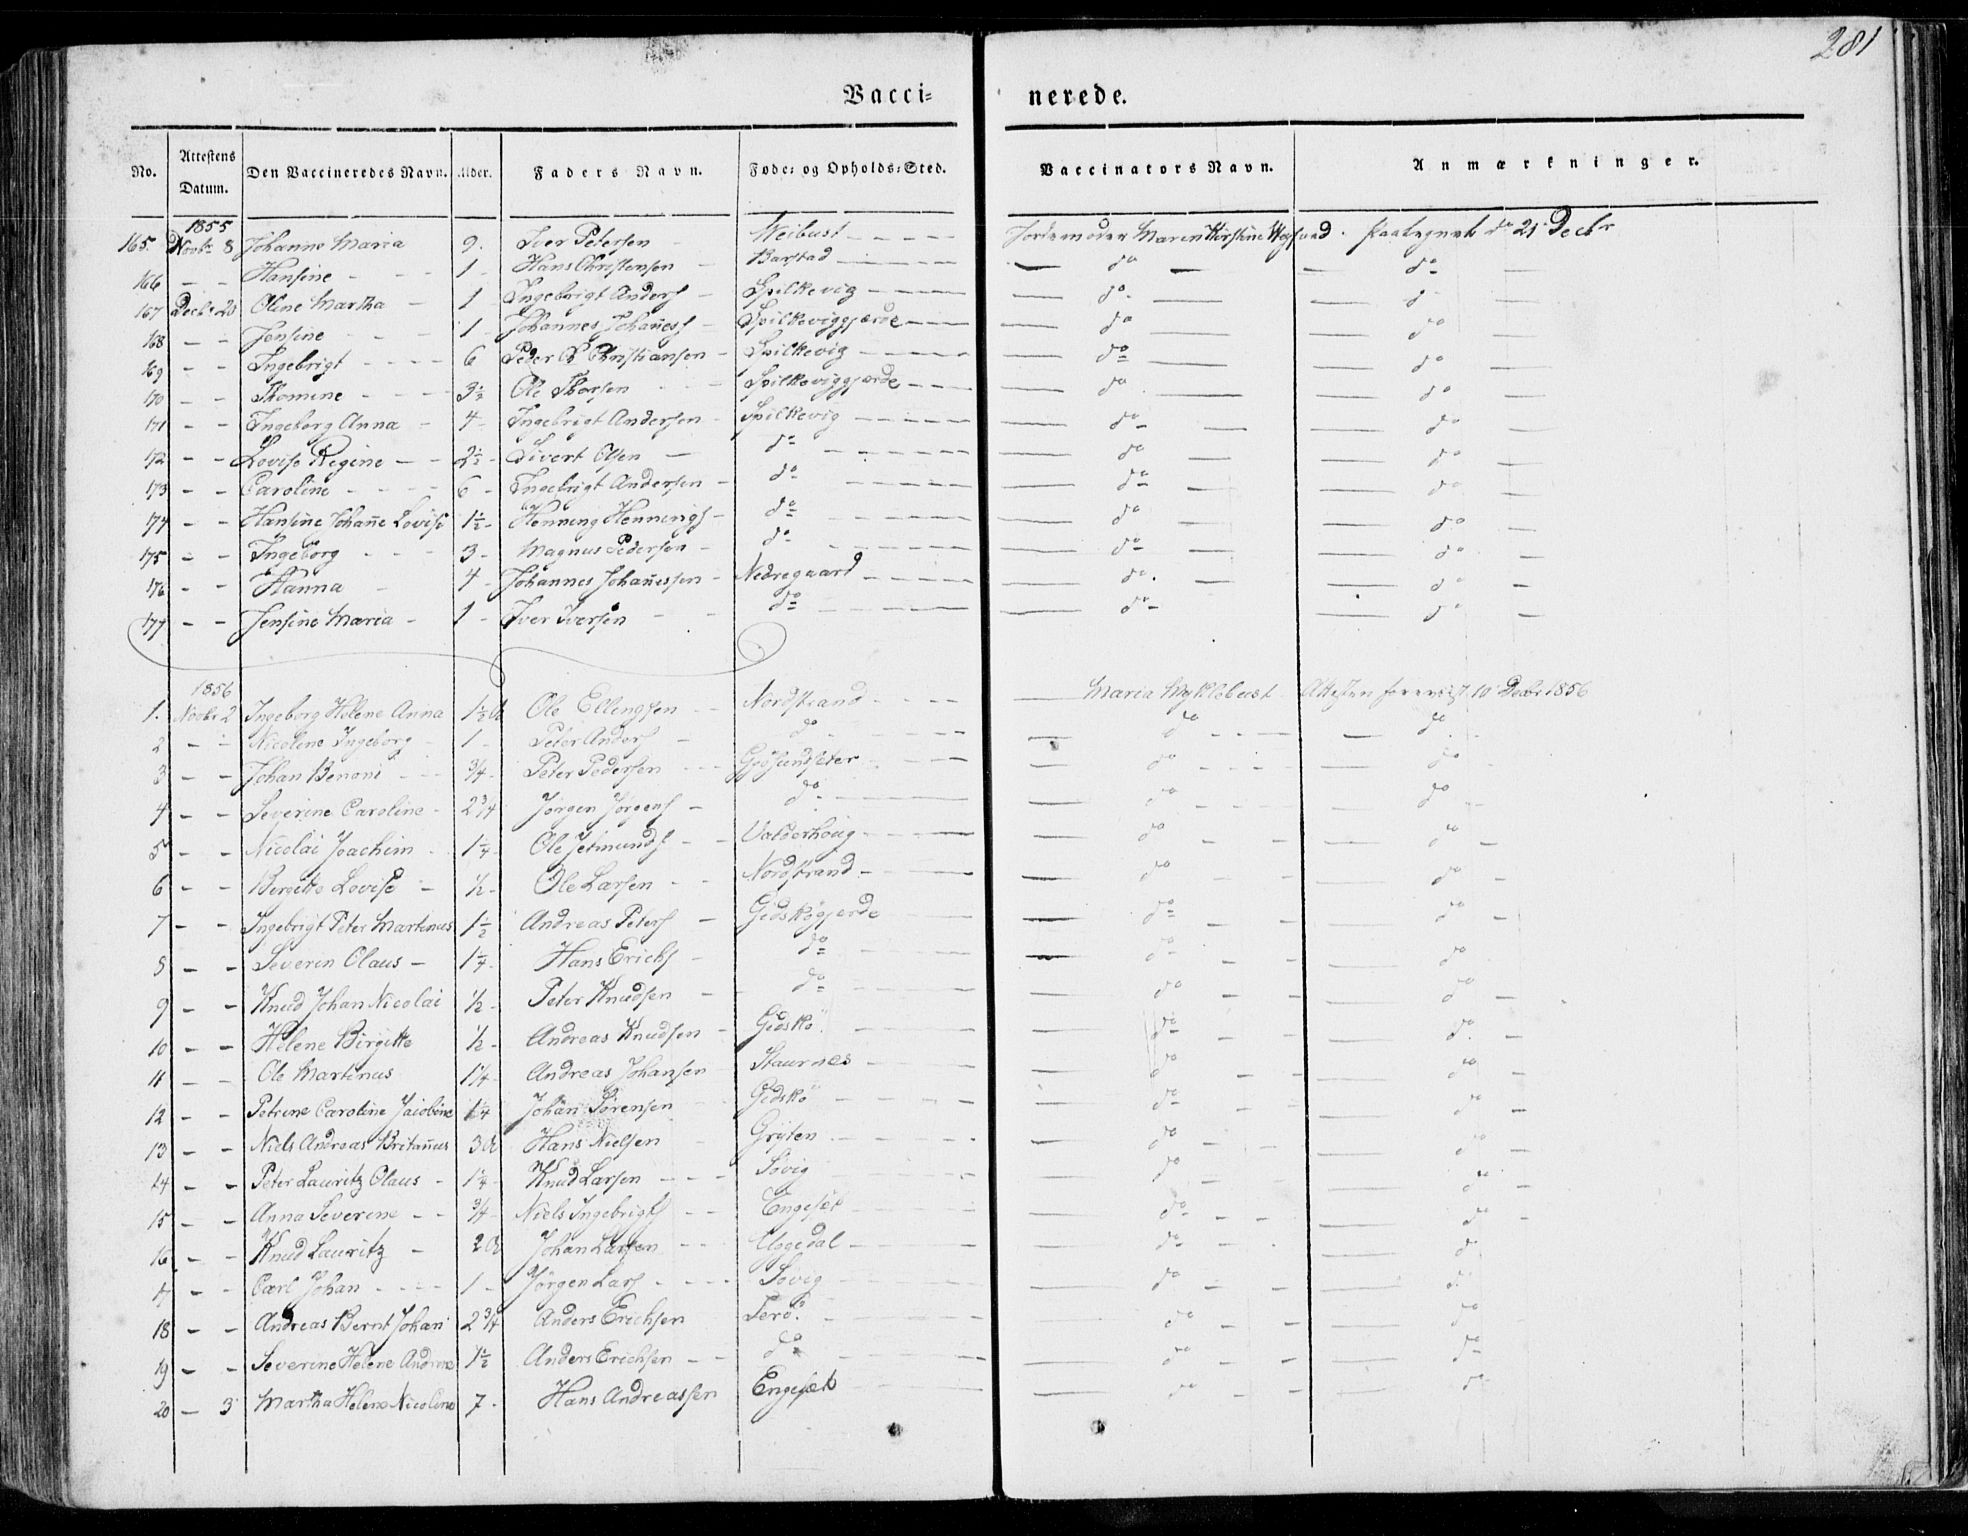 281
Vacci= nerede.
No. Attestens Datum. Den Vaccineredes Navn. Alder. Faders Navn. Føde= og Opholds=Sted. Vaccinators Navn. Anmærkninger.
1855
165. Novbr 8 Johanne Maria 9. Iver Petersen Weibust Jordemoder Maren Kirstine Paategnet do 21 Decbr
166 - - Hansine 1 Hans Christensen Barstad do do
167 Decbr 20 Oline Martha 1 Ingebrigt Anders Spilkevig do do
168 - - Jensine 1 Johannes Johaness Spilkeviggjærde do do
169 - - Ingebrigt 6 Peder Christiansen Spilkevig do do
170 - - Thomine 3½ Ole Thorsen Spilkeviggjærde do do
171 - - Ingeborg Anna 4 Ingebrigt Andersen Spilkevig do do
172 - - Lovise Regine 2½ Sivert Olsen do do do
173 - - Caroline 6 Ingebrigt Andersen do do do
174 - - Hansine Johanne Lovise 1½ Henning Hennings do do do
175 - - Ingeborg 3 Magnus Pedersen do do do
176 - - Hanna 4 Johannes Johanessen Nedregaard do do
177 - - Jensine Maria 1 Iver Iversen do do do
1856
1. Novbr 2 Ingeborg Helene Anna 1½ Ole Ellingsen Nordstrand Maria Myklebust Attesten forevist 10 Decbr 1856
2 - - Nicoline Ingeborg 1 Peter Anders do do do
3 - - Johan Benoni ¾ Peter Pedersen Gjøsundsæter do do
4 - - Severine Caroline 2¾ Jørgen Jørgens do do do
5 - - Nicolai Joachim 1¼ Ole Jetmunds Valderhoug do do
6 - - Birgitte Lovise ½ Ole Larsen Nordstrand do do
7 - - Ingebrigt Peter Martinus 1½ Andreas Peters Gidskøgjerde do do
8 - - Severin Olaus 1¼ Hans Erichs do do do
9 - - Knud Johan Nicolai ½ Peter Knudsen do do do
10 - - Helene Birgitte ½ Andreas Knudsen Gidskø do do
11 - - Ole Martinus 1¼ Andreas Johansen Staurnes do do
12 - - Petrine Caroline Jacobine 1¼ Johan Sørensen Gidskø do do
13 - - Niels Andreas Britanus 3 Hans Nielsen Gryten do do
14 - - Peter Lauritz Olaus 1¼ Knud Larsen Søvig do do
15 - - Anna Severine ¾ Niels Ingebrigts Engeset do do
16 - - Knud Lauritz 2 Johan Larsen Uggedal do do
17 - - Carl Johan 1 Jørgen Lars Søvig do do
18 - - Andreas Bernt Johan 2¾ Anders Erichsen Terø do do
19 - - Severine Helene Andrine 1½ Anders Erichsen do do do
20 - 3 Martha Helene Nicoline 7 Hans Andreassen Engeset do do